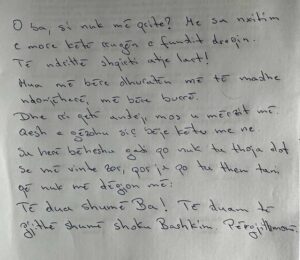 O ba, si nuk më prite? Me sa nxitim
e more këtë rrugën e fundit drejt
Të ndrittë shpirti atje lart!
Mua më bëre dhuratën më të madhe
ndonjëherë, më bëre burrë.
Dhe si qetë andej, mos u mërzit më.
Qesh e gëzohu siç bëje këtu me ne.
Sa herë bëhesha gati po nuk ta thoja dot
Se më vinte zor, por ja po ta them tani
që nuk më dëgjon më:
Të dua shumë Ba! Të duam të
gjithë shumë shoku Bashkim